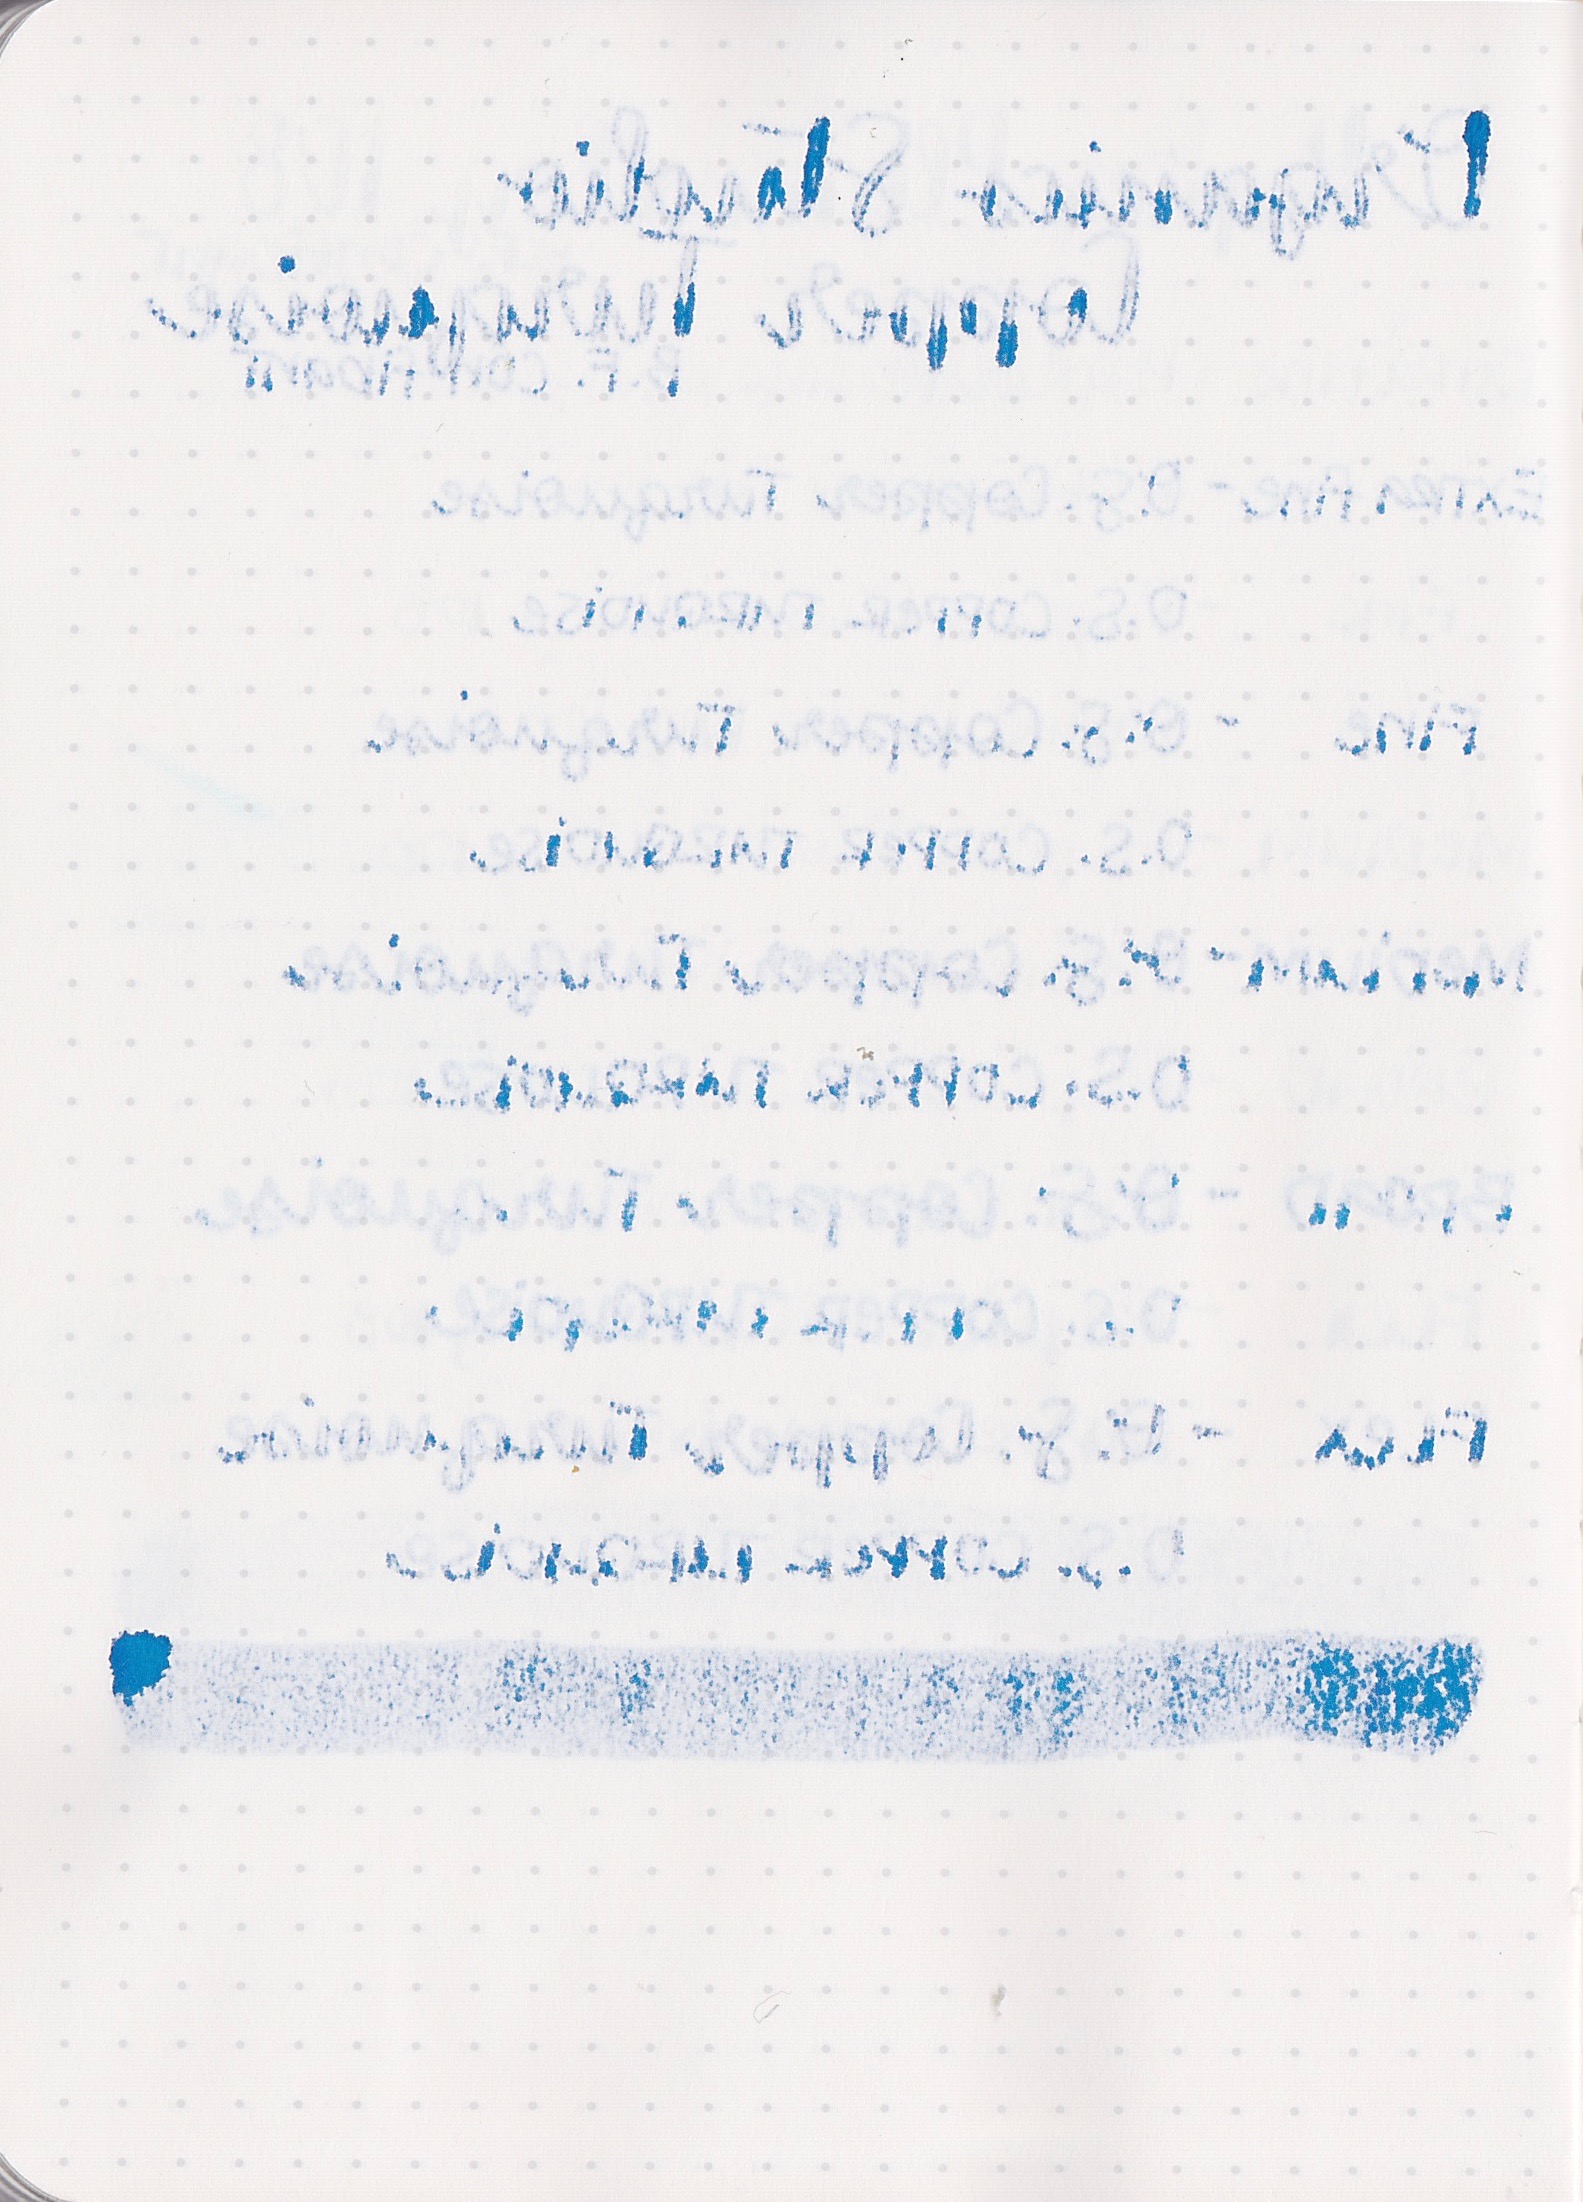 Organics Studio
Copper Turquoise
B.F. CONFIDANT
EXTRA FINE - O.S. Copper Turquoise
O.S. COPPER TURQUOISE
FINE - O.S. Copper Turquoise
O.S. COPPER TURQUOISE
MEDIUM - O.S. Copper Turquoise
O.S. COPPER TURQUOISE
BROAD - O.S. Copper Turquoise
O.S. COPPER TURQUOISE
FLEX - O.S. Copper Turquoise
O.S. COPPER TURQUOISE